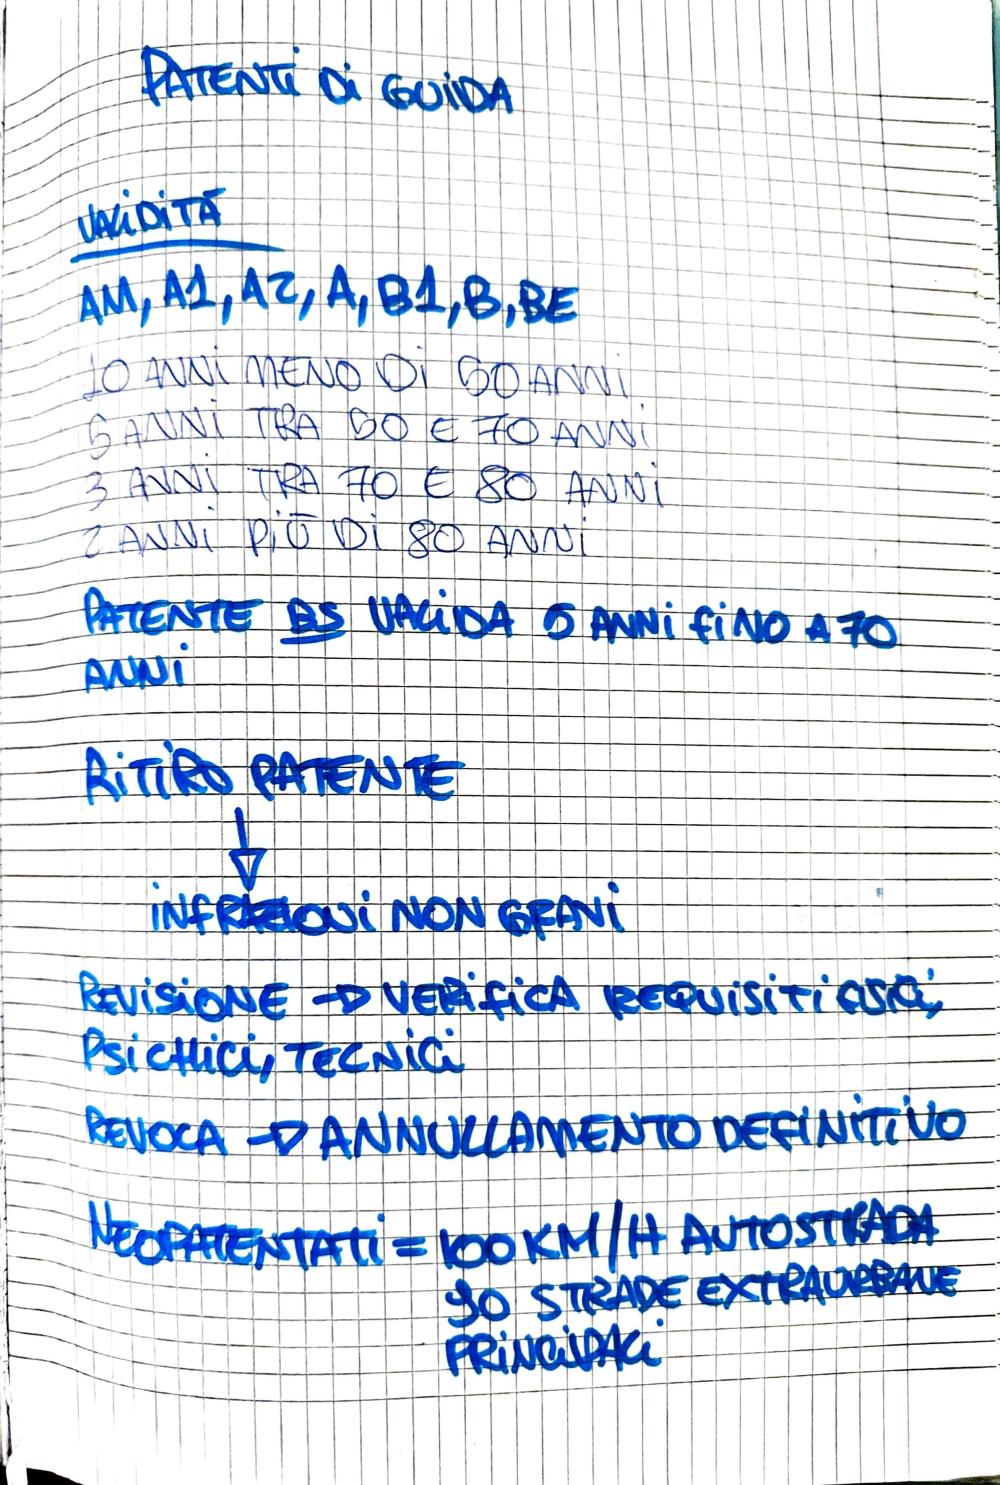 PATENTI Di GUiDA
VALiDiTÀ
AM, A1, A2, A, B1, B, BE
10 ANNi MENO Di 50 ANNi
5 ANNi TRA 50 E 70 ANNi
3 ANNi TRA 70 E 80 ANNi
2 ANNi PiÙ Di 80 ANNi
PATENTE BS VALiDA 5 ANNi fiNO A 70
ANNi
RiTiRO PATENTE
iNFRAZiONi NON GRAVi
REViSiONE → VERifiCA REQUiSiTi fiSiCi,
PSiCHiCi, TECNiCi
REVOCA → ANNULLAMENTO DEFiNiTiVO
NEOPATENTATi = 100 KM/H AUTOSTRADA
90 STRADE EXTRAURBANE
PRiNCiPALi